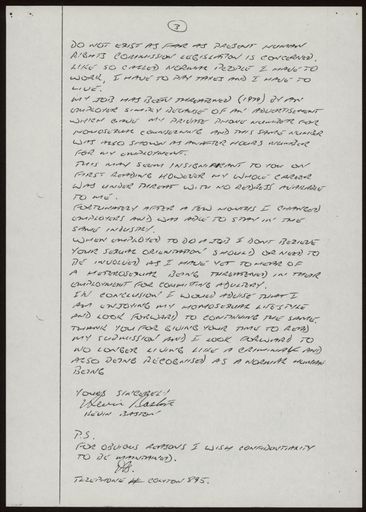 3
DO NOT EXIST AS FAR AS PRESENT HUMAN
RIGHTS COMMISSION LEGISLATION IS CONCERNED.
LIKE SO CALLED NORMAL PEOPLE I HAVE TO
WORK, I HAVE TO PAY TAXES AND I HAVE TO
LIVE.
MY JOB HAS BEEN THREATENED (1979) BY AN
EMPLOYER SIMPLY BECAUSE OF AN ADVERTISEMENT
WHICH GAVE MY PRIVATE PHONE NUMBER FOR
HOMOSEXUAL COUNSELLING AND THIS SAME NUMBER
WAS ALSO SHOWN AS AN AFTER HOURS NUMBER
FOR MY EMPLOYMENT.
THIS MAY SEEM INSIGNIFICANT TO YOU ON
FIRST READING HOWEVER MY WHOLE CAREER
WAS UNDER THREAT WITH NO REDRESS AVAILABLE
TO ME.
FORTUNATELY AFTER A FEW MONTHS I CHANGED
EMPLOYERS AND WAS ABLE TO STAY IN THE
SAME INDUSTRY.
WHEN EMPLOYED TO DO A JOB I DONT BELIEVE
YOUR SEXUAL ORIENTATION SHOULD OR NEED TO
BE INVOLVED AS I HAVE YET TO HEAR OF
A HETEROSEXUAL BEING THREATENED IN THEIR
EMPLOYMENT FOR COMMITING ADULTERY.
IN CONCLUSION I WOULD ADVISE THAT I
AM ENJOYING MY HOMOSEXUAL LIFESTYLE
AND LOOK FORWARD TO CONTINUING THE SAME.
THANK YOU FOR GIVING YOUR TIME TO READ
MY SUBMISSION AND I LOOK FORWARD TO
NO LONGER LIVING LIKE A CRIMINAL AND
ALSO BEING RECOGNISED AS A NORMAL HUMAN
BEING
YOURS SINCERELY
KEVIN
P.S.
FOR OBVIOUS REASONS I WISH CONFIDENTIALITY
TO BE MAINTAINED.
TELEPHONE 895.